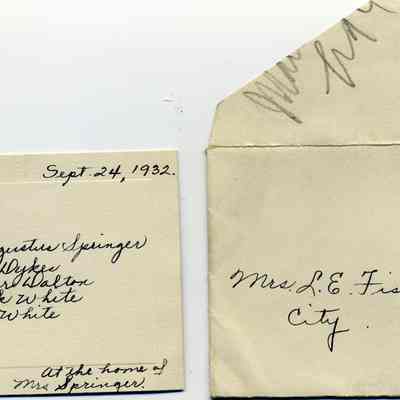 Sept. 24, 1932.
gustus Springer
Dykes
Dalton
White
White
At the home of
Mrs Springer.
Mrs. L. E. Fis
City.